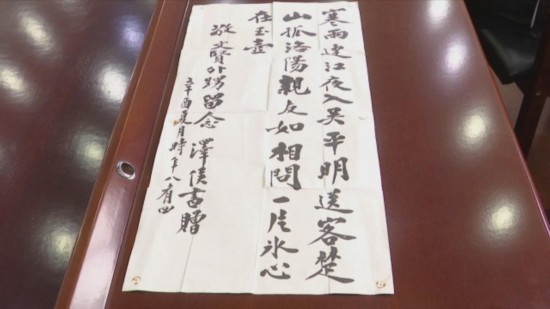 寒雨連江夜入吴平明送客楚
山孤洛陽親友如相問一片冰心
在玉壺
賢外甥留念 澤侯 贈
辛酉夏月時年八有四